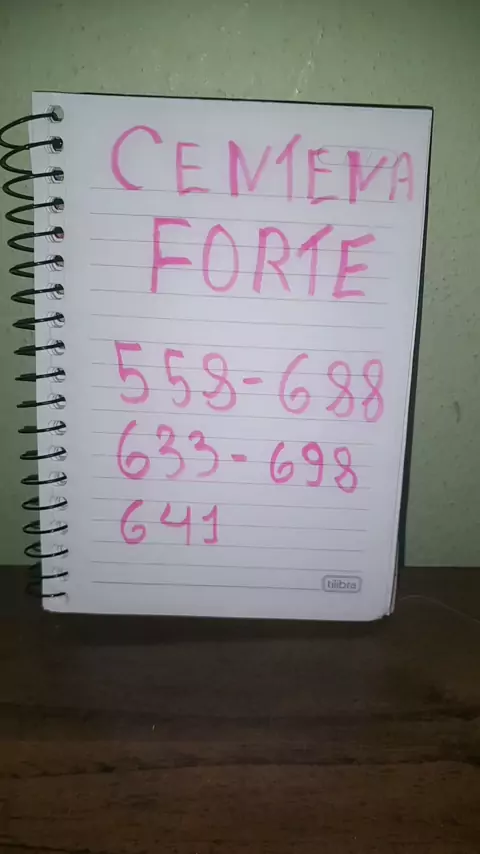 CENTENA
FORTE
558-688
633-698
641
tilibra